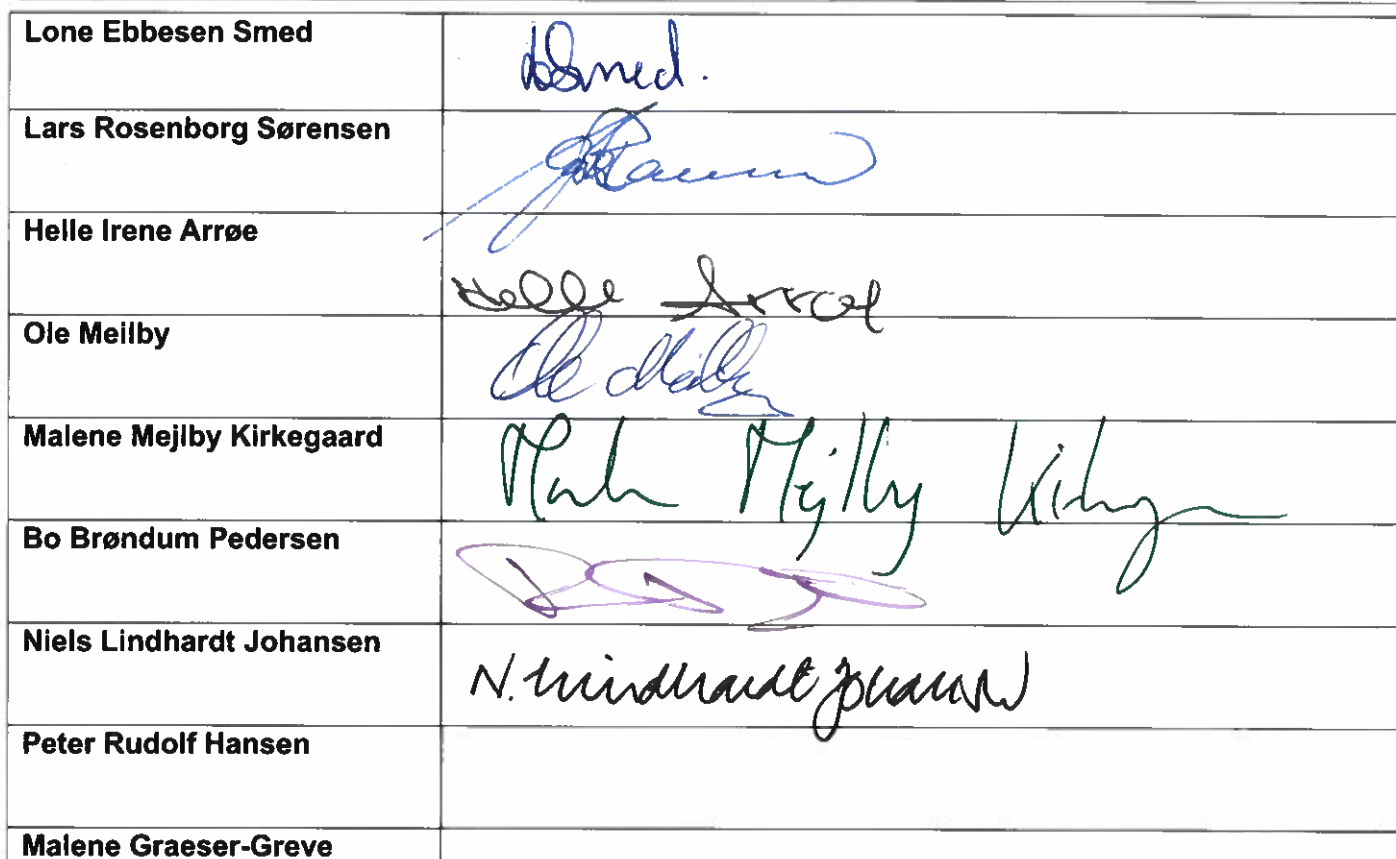 Lone Ebbesen Smed
Smed.
Lars Rosenborg Sørensen
Helle Irene Arrøe
Helle Arrøe
Ole Meilby
Ole Meilby
Malene Mejlby Kirkegaard
Mejlby
Bo Brøndum Pedersen
Niels Lindhardt Johansen
N. Lindhardt Johansen
Peter Rudolf Hansen
Malene Graeser-Greve